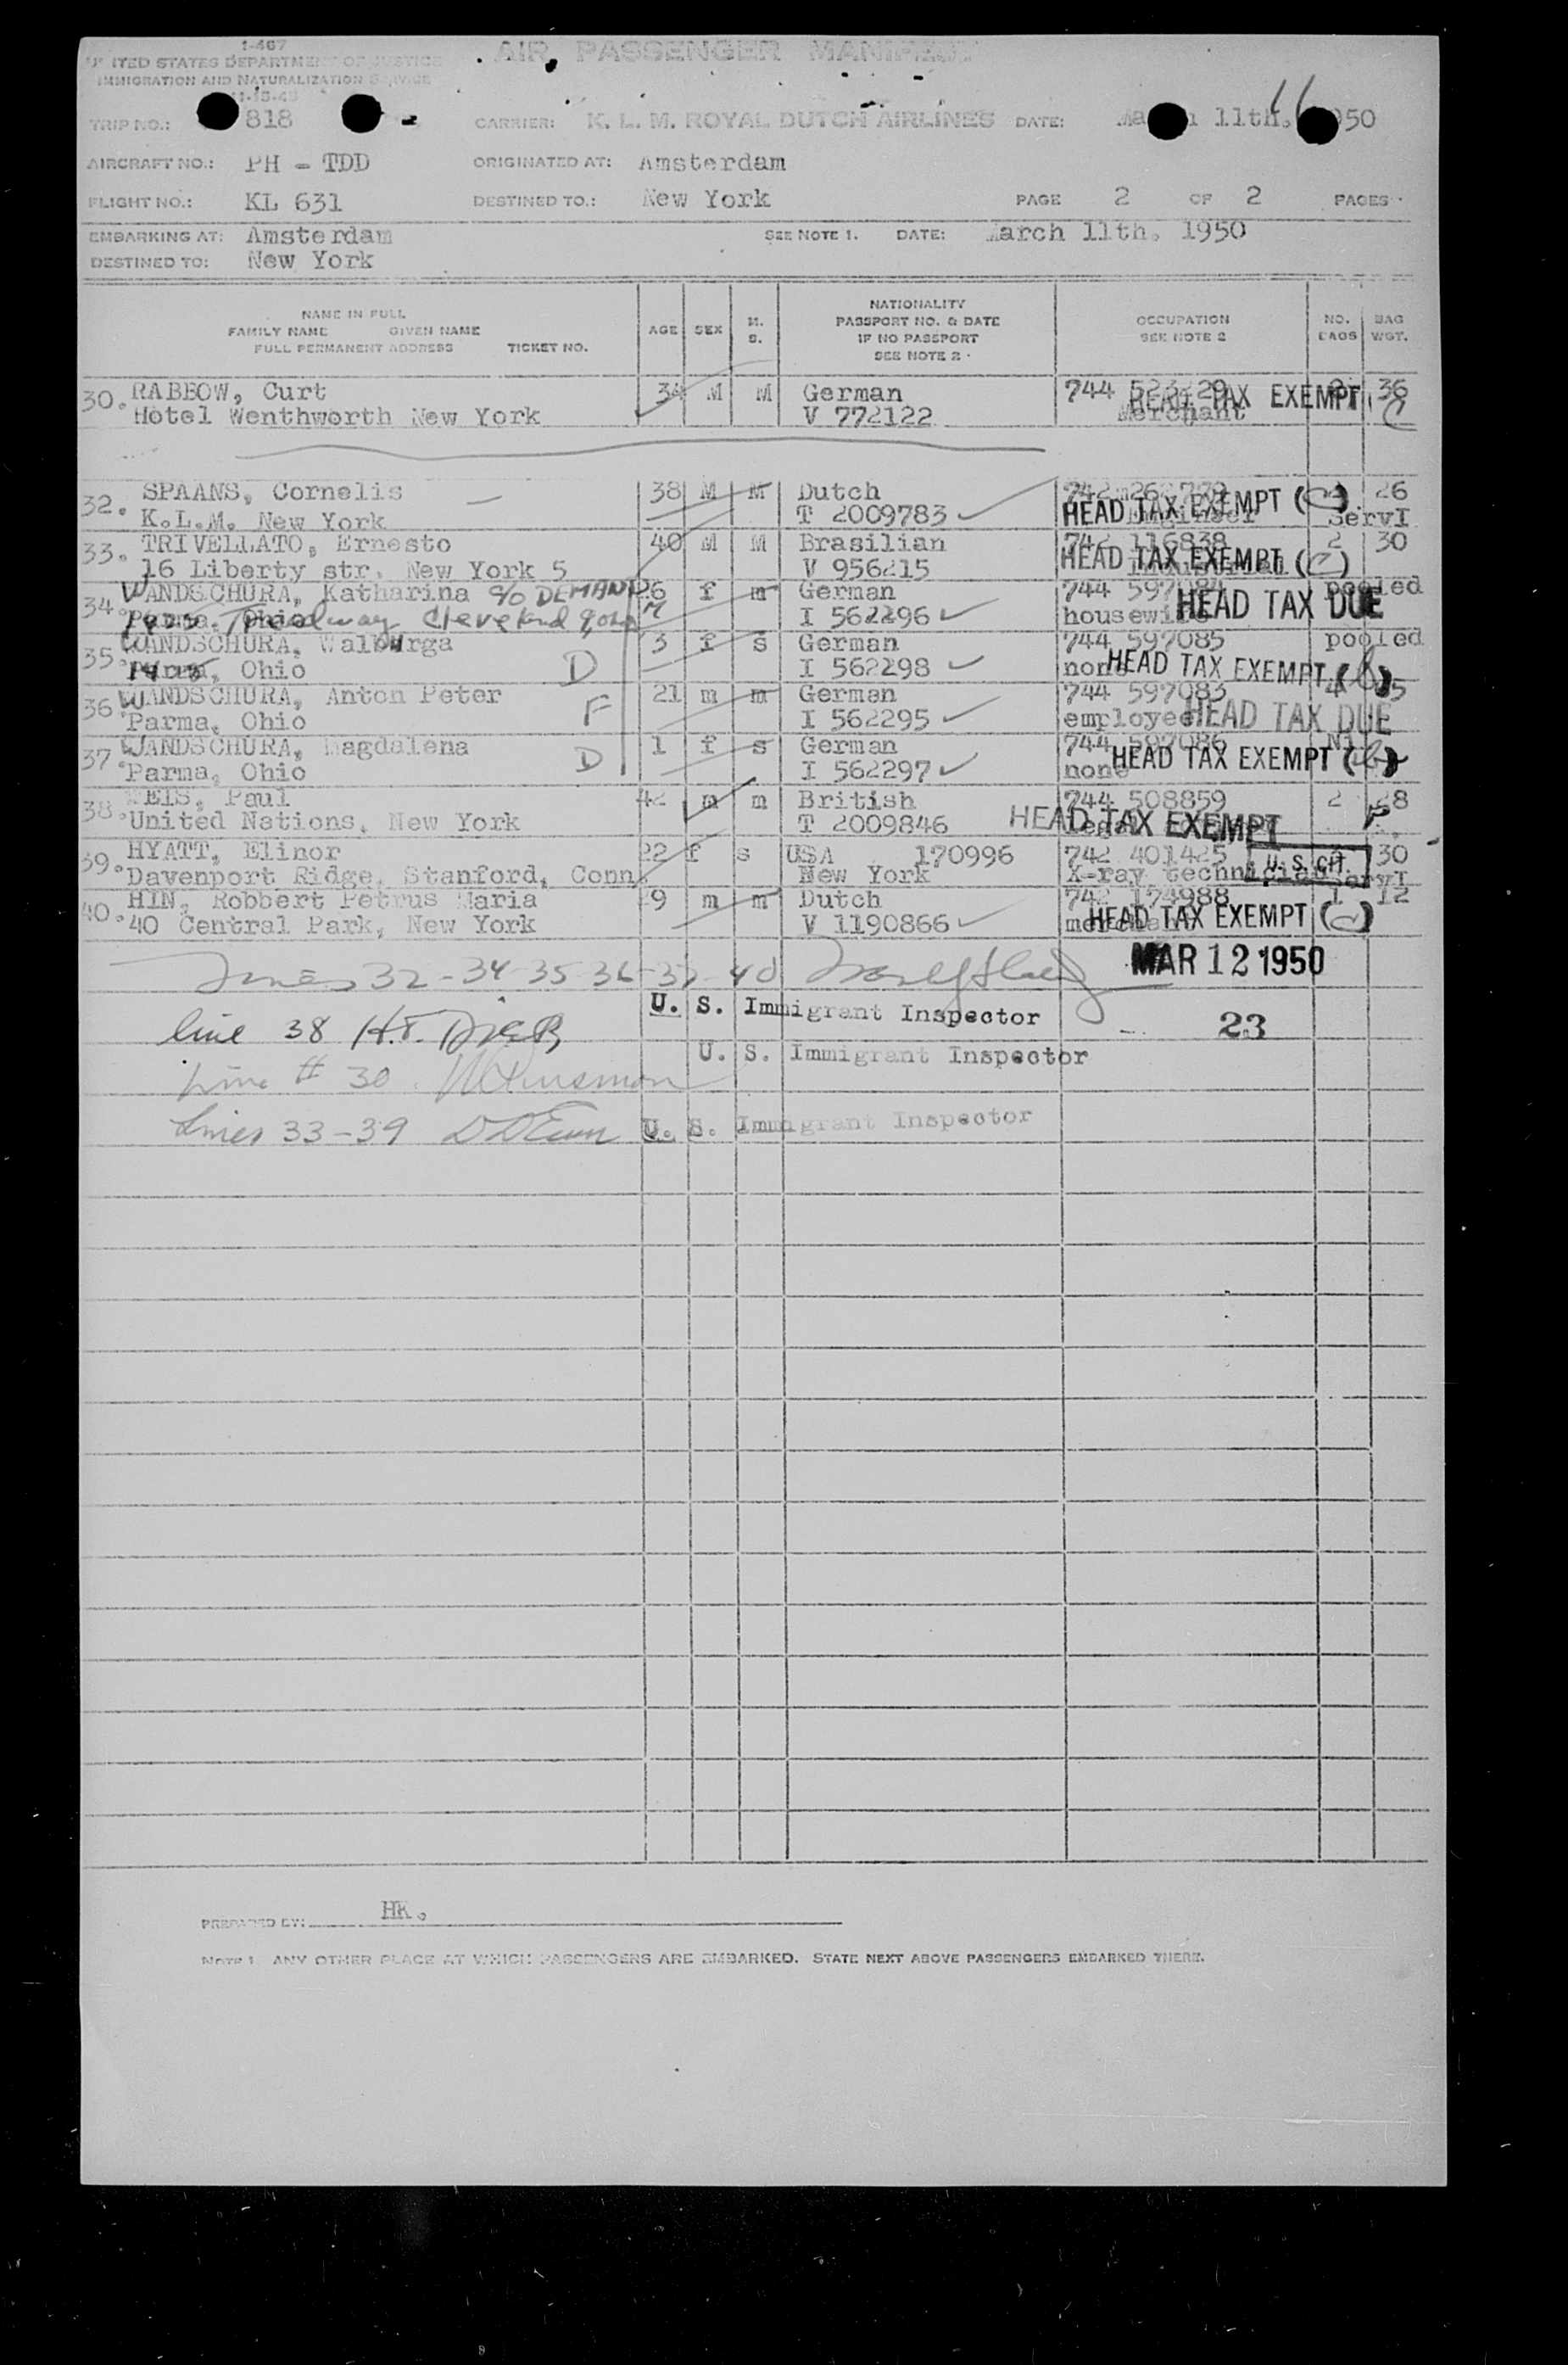 1-467
UNITED STATES DEPARTMENT OF JUSTICE
IMMIGRATION AND NATURALIZATION SERVICE
11-15-45
AIR PASSENGER MANIFEST
TRIP NO.: 818 CARRIER: K. L. M. ROYAL DUTCH AIRLINES DATE: March 11th. 1950
16
AIRCRAFT NO.: PH - TDD ORIGINATED AT: Amsterdam
FLIGHT NO.: KL 631 DESTINED TO.: New York PAGE 2 OF 2 PAGES
EMBARKING AT: Amsterdam SEE NOTE 1. DATE: March 11th. 1950
DESTINED TO: New York
NAME IN FULL
FAMILY NAME GIVEN NAME
FULL PERMANENT ADDRESS TICKET NO.
AGE SEX M. S.
NATIONALITY
PASSPORT NO. & DATE
IF NO PASSPORT
SEE NOTE 2
OCCUPATION
SEE NOTE 2
NO. BAGS
BAG WGT.
30. RABBOW, Curt 34 M M German 744 523229 36
Hotel Wenthworth New York V 772122 Merchant
HEAD TAX EXEMPT
32. SPAANS, Cornelis 38 M M Dutch 26
K.L.M. New York T 2009783 Engineer ServI
HEAD TAX EXEMPT
33. TRIVELLATO, Ernesto 40 M M Brasilian 742 116838 2 30
16 Liberty str. New York 5 V 956215
HEAD TAX EXEMPT
34. WANDSCHURA, Katharina c/o DEMAND 26 f m German 744 597084 pooled
Parma. Ohio Treadway Cleveland 9, Ohio M I 562296 housewife
HEAD TAX DUE
35. WANDSCHURA, Walburga 3 f s German 744 597085 pooled
Parma, Ohio D I 562298 none
HEAD TAX EXEMPT
36. WANDSCHURA, Anton Peter 21 m m German 744 597083
Parma, Ohio F I 562295 employee
HEAD TAX DUE
37. WANDSCHURA, Magdalena 1 f s German 744 597086 Nil
Parma, Ohio D I 562297 none
HEAD TAX EXEMPT
38. WEIS, Paul 42 m m British 744 508859 2 28
United Nations, New York T 2009846
HEAD TAX EXEMPT
39. HYATT, Elinor 22 f s USA 170996 742 401425 30
Davenport Ridge, Stanford, Conn New York X-ray technician ServI
U. S. CIT.
40. HIN, Robbert Petrus Maria 29 m m Dutch 742 174988 1 12
40 Central Park, New York V 1190866 merchant
HEAD TAX EXEMPT
Lines 32-34-35-36-37-40 MAR 12 1950
U. S. Immigrant Inspector
line 38 H.F. 23
U. S. Immigrant Inspector
Line # 30
Lines 33-39 U. S. Immigrant Inspector
PREPARED BY: HK.
NOTE 1 ANY OTHER PLACE AT WHICH PASSENGERS ARE EMBARKED. STATE NEXT ABOVE PASSENGERS EMBARKED THERE.